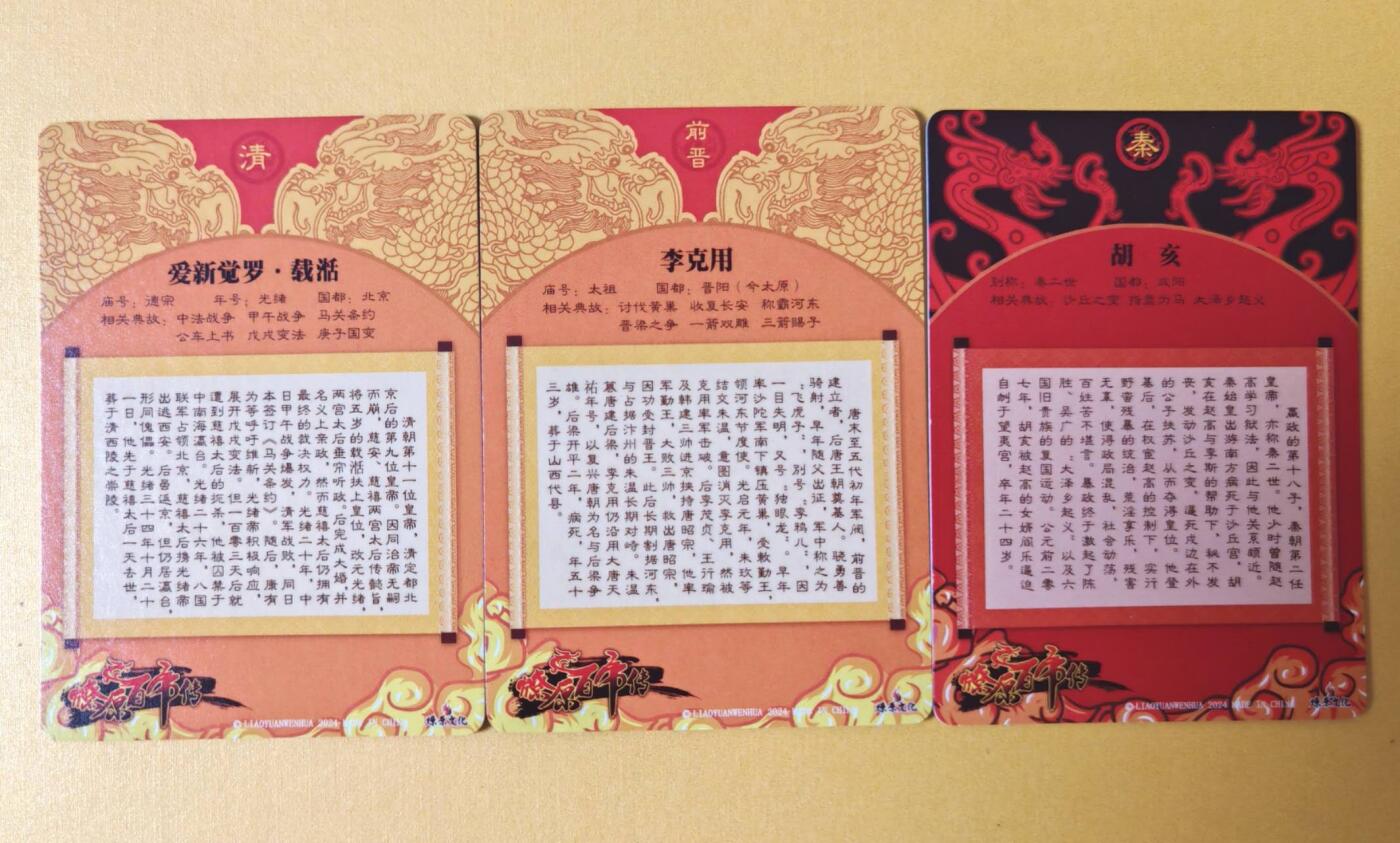 清
爱新觉罗·载湉
庙号：德宗 年号：光绪 国都：北京
相关典故：中法战争 甲午战争 马关条约
公车上书 戊戌变法 庚子国变
清朝第十一位皇帝，清定都北
京后的第九位皇帝。因同治帝无嗣
而崩，慈安、慈禧两宫太后传懿旨，
将五岁的载湉扶上皇位，改元光绪，
两宫太后垂帘听政。后完成大婚并
名义上亲政，然而慈禧太后仍拥有
最终的裁决权力。光绪二十年，中
日甲午战争爆发，清军战败，同日
本签订《马关条约》。随后，康有
为等呼吁维新，光绪帝积极响应，
展开戊戌变法。但一百零三天后就
遭到慈禧太后的扼杀，他被囚禁于
中南海瀛台。光绪二十六年，八国
联军占领北京，慈禧太后携光绪帝
出逃西安。后虽返京，但仍居瀛台，
形同傀儡。光绪三十四年十月二十
一日，他先于慈禧太后一天去世，
葬于清西陵之崇陵。
燎原百帝传
©LIAOYUANWENHUA 2024 MADE IN CHINA
燎原文化
前晋
李克用
庙号：太祖 国都：晋阳（今太原）
相关典故：讨伐黄巢 收复长安 称霸河东
晋梁之争 一箭双雕 三箭赐子
唐末至五代初年军阀，前晋的
建立者，后唐王朝奠基人。骁勇善
骑射，早年随父出征，军中称之为
“飞虎子”，别号“李鸦儿”，因
一目失明，又号“独眼龙”。早年
率沙陀军南下镇压黄巢，受敕勤王，
领河东节度使。光启元年，朱玫等
结交朱温，意图消灭李克用，然被
克用率军击破。后李茂贞、王行瑜
及韩建三帅进京挟持唐昭宗，他率
军勤王，大败三帅，救出唐昭宗，
因功受封晋王。此后长期割据河东，
与占据汴州的朱温长期对峙。朱温
篡唐建后梁，李克用仍沿用大唐天
祐年号，以复兴唐朝为名与后梁争
雄。后梁开平二年，病死，年五十
三岁，葬于山西代县。
燎原百帝传
©LIAOYUANWENHUA 2024 MADE IN CHINA
燎原文化
秦
胡亥
别称：秦二世 国都：咸阳
相关典故：沙丘之变 指鹿为马 大泽乡起义
嬴政的第十八子，秦朝第二任
皇帝，亦称秦二世。他少时曾随赵
高学习狱法，因此与他关系颇近。
秦始皇出游南方病死于沙丘宫，胡
亥在赵高与李斯的帮助下，秘不发
丧，发动沙丘之变，逼死戍边在外
的公子扶苏，从而夺得皇位。他登
基后，在权宦赵高的控制下，实行
野蛮残暴的统治，荒淫享乐，残害
无辜，使得政局混乱，社会动荡，
百姓苦不堪言。暴政终于激起了陈
胜、吴广的“大泽乡起义”以及六
国旧贵族的复国运动。公元前二零
七年，胡亥被赵高的女婿阎乐逼迫
自刎于望夷宫，卒年二十四岁。
燎原百帝传
©LIAOYUANWENHUA 2024 MADE IN CHINA
燎原文化